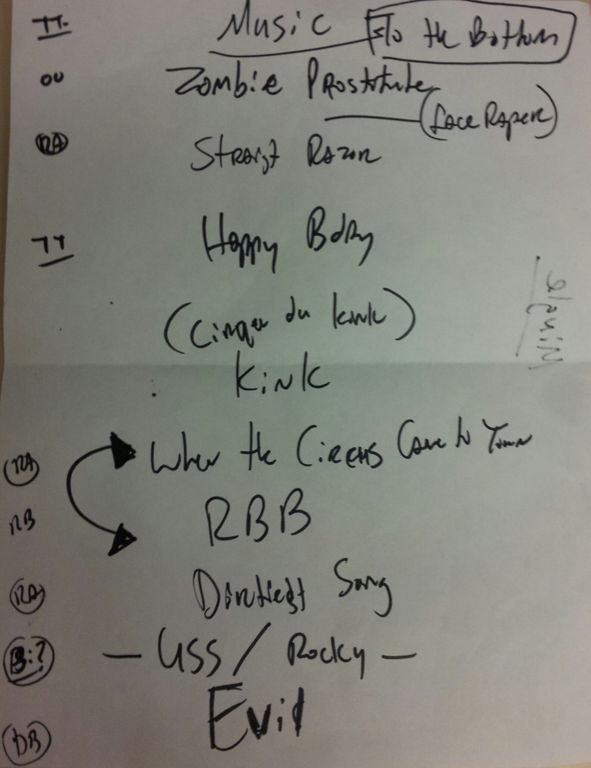 77. Music To the Bottom
OU Zombie Prostitute
(face Rapere)
RA Straigt Razor
77 Happy Bday
(Cirque du kink)
Kink
RA When the Circus Came to Town
RB RBB
RA Dirtiest Song
B:? — USS / Rocky —
DB Evil